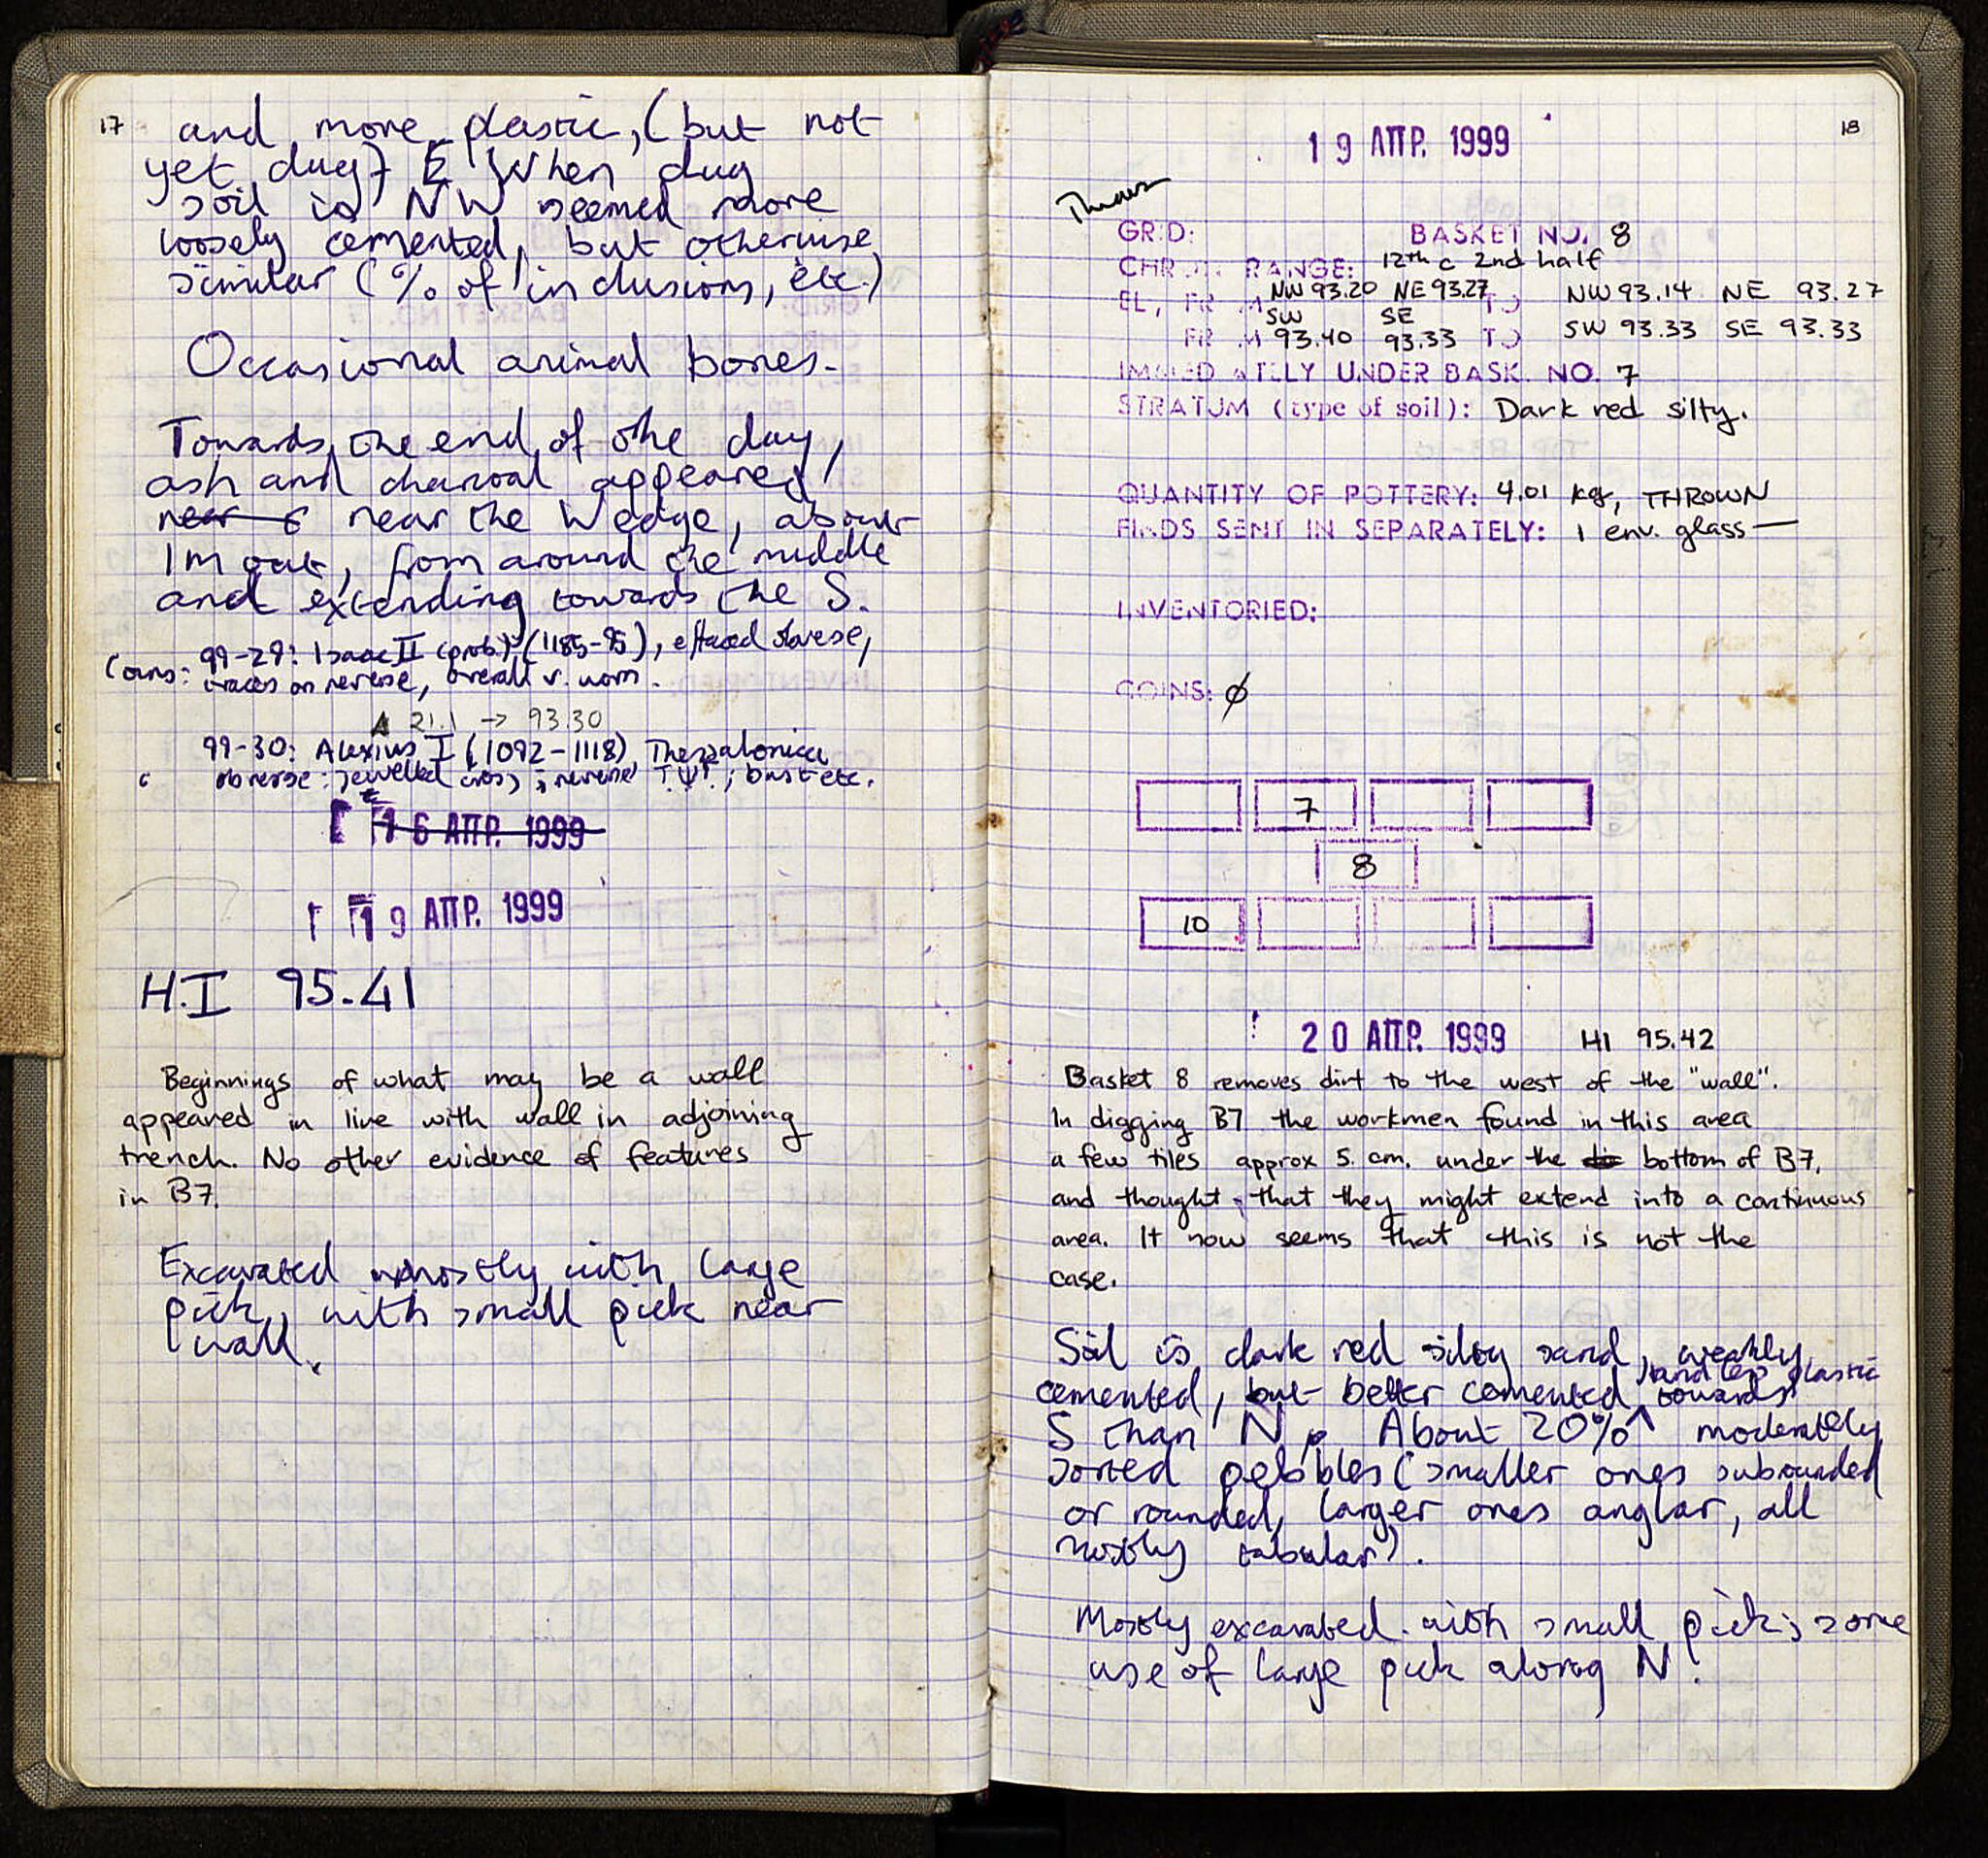 17
and more plastic, (but not
yet dug) E When dug
soil in NW seemed more
loosely cemented, but otherwise
similar (% of inclusions, etc.)
Occasional animal bones.
Towards the end of the day,
ash and charcoal appeared
near near the Wedge, about
1m out, from around the middle
and extending towards the S.
Coins: 99-29: Isaac II (prob.) (1185-95), effaced obverse,
traces on reverse, overall v. worn.
21.1 → 93.30
99-30: Alexius I (1092-1118), Thessalonica
obverse: jewelled cross; reverse: bust etc.
16 ΑΠΡ. 1999
19 ΑΠΡ. 1999
H.I 95.41
Beginnings of what may be a wall
appeared in line with wall in adjoining
trench. No other evidence of features
in B7.
Excavated mostly with large
pick, with small pick near
wall.
18
19 ΑΠΡ. 1999
Thrown
GRID: BASKET NO. 8
CHRON. RANGE: 12th c 2nd half
EL, FROM NW 93.20 NE 93.27 TO NW 93.14 NE 93.27
FROM SW 93.40 SE 93.33 TO SW 93.33 SE 93.33
IMMEDIATELY UNDER BASK. NO. 7
STRATUM (type of soil): Dark red silty.
QUANTITY OF POTTERY: 4.01 kg, THROWN
FINDS SENT IN SEPARATELY: 1 env. glass —
INVENTORIED:
COINS: ∅
7
8
10
20 ΑΠΡ. 1999 HI 95.42
Basket 8 removes dirt to the west of the "wall".
In digging B7 the workmen found in this area
a few tiles approx 5. cm. under the bottom of B7.
and thought that they might extend into a continuous
area. It now seems that this is not the
case.
Soil is dark red silty sand, weakly
cemented, but better cemented and less plastic towards
S than N. About 20% moderately
sorted pebbles (smaller ones subrounded
or rounded, larger ones anglar, all
mostly tabular).
Mostly excavated with small pick; some
use of large pick along N.